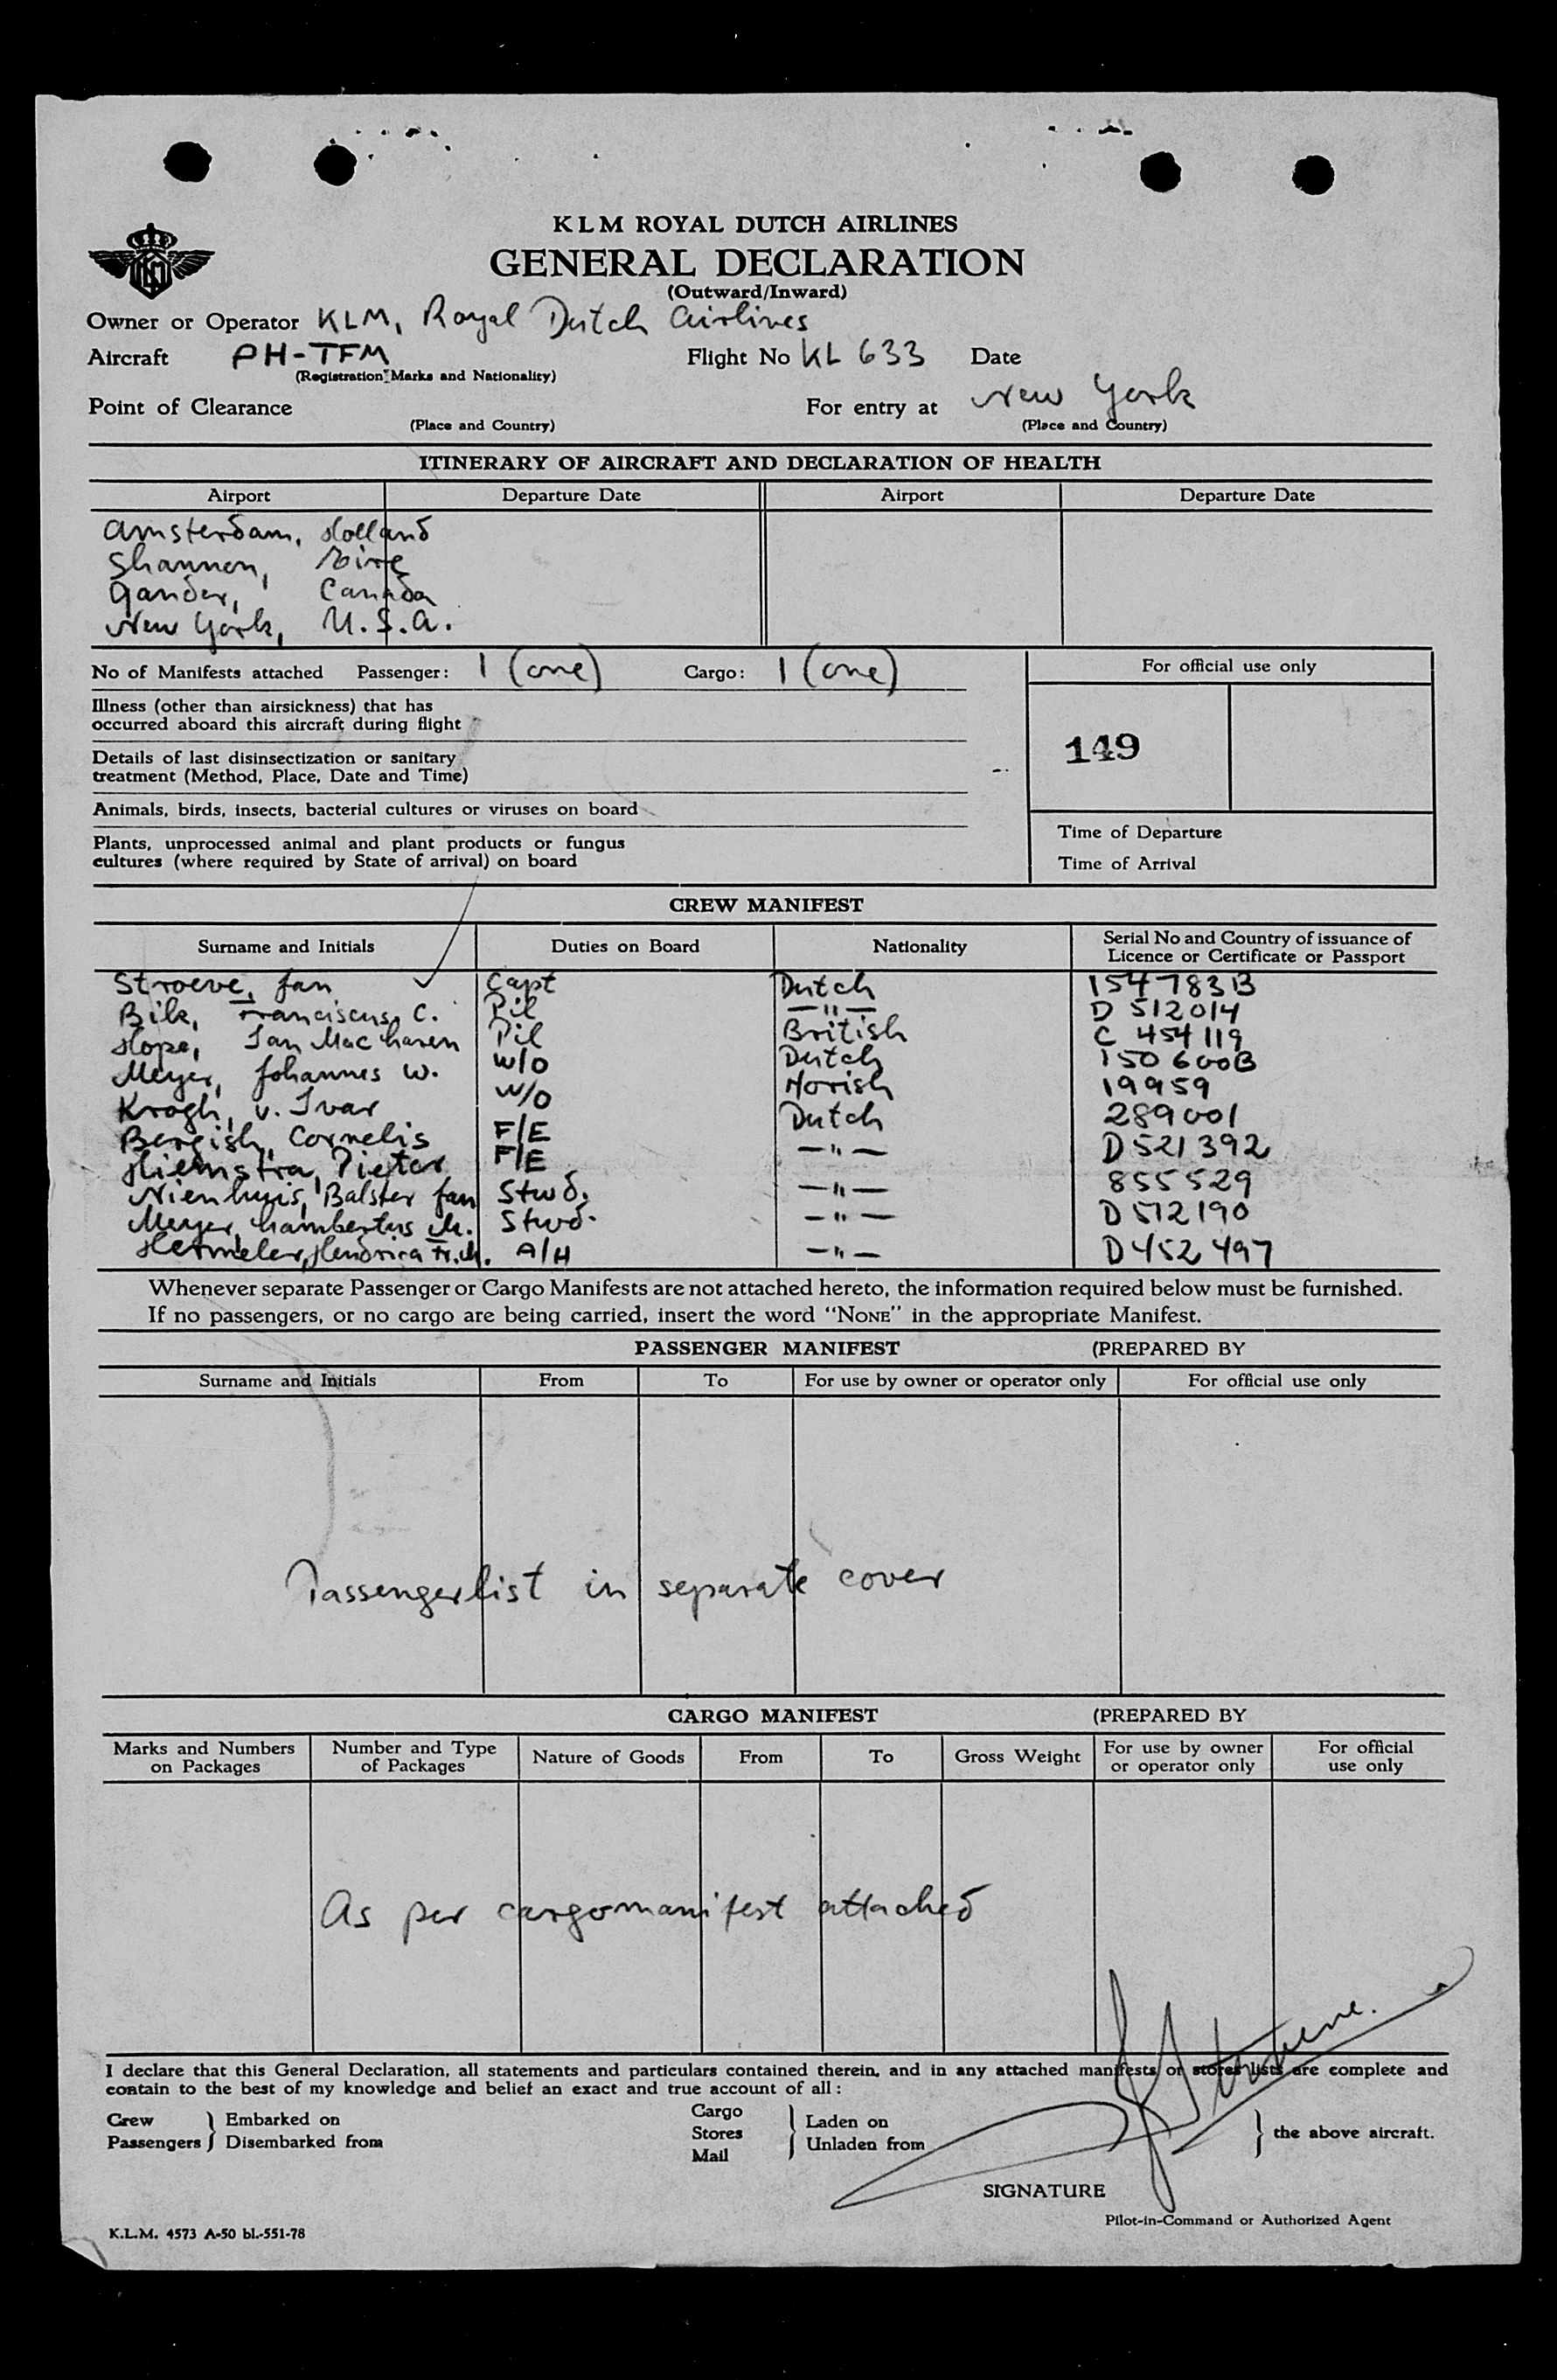 KLM ROYAL DUTCH AIRLINES
GENERAL DECLARATION
(Outward/Inward)
Owner or Operator KLM, Royal Dutch Airlines
Aircraft PH-TFM Flight No KL 633 Date
(Registration Marks and Nationality)
Point of Clearance For entry at New York
(Place and Country) (Place and Country)
ITINERARY OF AIRCRAFT AND DECLARATION OF HEALTH
Airport Departure Date Airport Departure Date
Amsterdam, Holland
Shannon, Eire
Gander, Canada
New York, U.S.A.
No of Manifests attached Passenger: 1 (one) Cargo: 1 (one) For official use only
Illness (other than airsickness) that has
occurred aboard this aircraft during flight
149
Details of last disinsectization or sanitary
treatment (Method, Place, Date and Time)
Animals, birds, insects, bacterial cultures or viruses on board
Plants, unprocessed animal and plant products or fungus
cultures (where required by State of arrival) on board
Time of Departure
Time of Arrival
CREW MANIFEST
Surname and Initials Duties on Board Nationality Serial No and Country of issuance of
Licence or Certificate or Passport
Stroeve, Jan Capt Dutch 154783B
Bik, Franciscus C. Pil —"— D 512014
Hope, Ian Pil British C 454119
Meyer, Johannes W. W/O Dutch 150600B
Krogh, v. Ivar W/O Norish 19959
Cornelis F/E Dutch 289001
Hiemstra, Pieter F/E —"— D521392
Nienhuis, Balster Jan Stwd. —"— 855529
Meyer, Lambertus M. Stwd. —"— D512190
Hermeler, Hendrica Fr.M. A/H —"— D452497
Whenever separate Passenger or Cargo Manifests are not attached hereto, the information required below must be furnished.
If no passengers, or no cargo are being carried, insert the word "NONE" in the appropriate Manifest.
PASSENGER MANIFEST (PREPARED BY
Surname and Initials From To For use by owner or operator only For official use only
Passengerlist in separate cover
CARGO MANIFEST (PREPARED BY
Marks and Numbers on Packages Number and Type of Packages Nature of Goods From To Gross Weight For use by owner or operator only For official use only
As per cargomanifest attached
I declare that this General Declaration, all statements and particulars contained therein, and in any attached manifests or stores lists are complete and
contain to the best of my knowledge and belief an exact and true account of all:
Crew Passengers } Embarked on Disembarked from
Cargo Stores Mail } Laden on Unladen from } the above aircraft.
JStroeve.
SIGNATURE
Pilot-in-Command or Authorized Agent
K.L.M. 4573 A-50 bl.-551-78